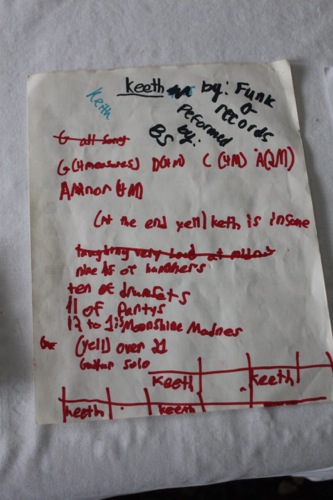 Keeth by: Funk
Keith
a records
Performed
by:
BS
G all song
G (4measures) D(4M) C (4M) A(2M)
AMinor (4M)
(At the end yell) keth is insane
nine is of
ten of drumsets
11 of Partys
12 to 1 is Moonshine Madnes
(yell) over 21
Guitar solo
keeth keeth
keeth keeth